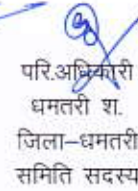 परि.अधिकारी
धमतरी श.
जिला–धमतरी
समिति सदस्य